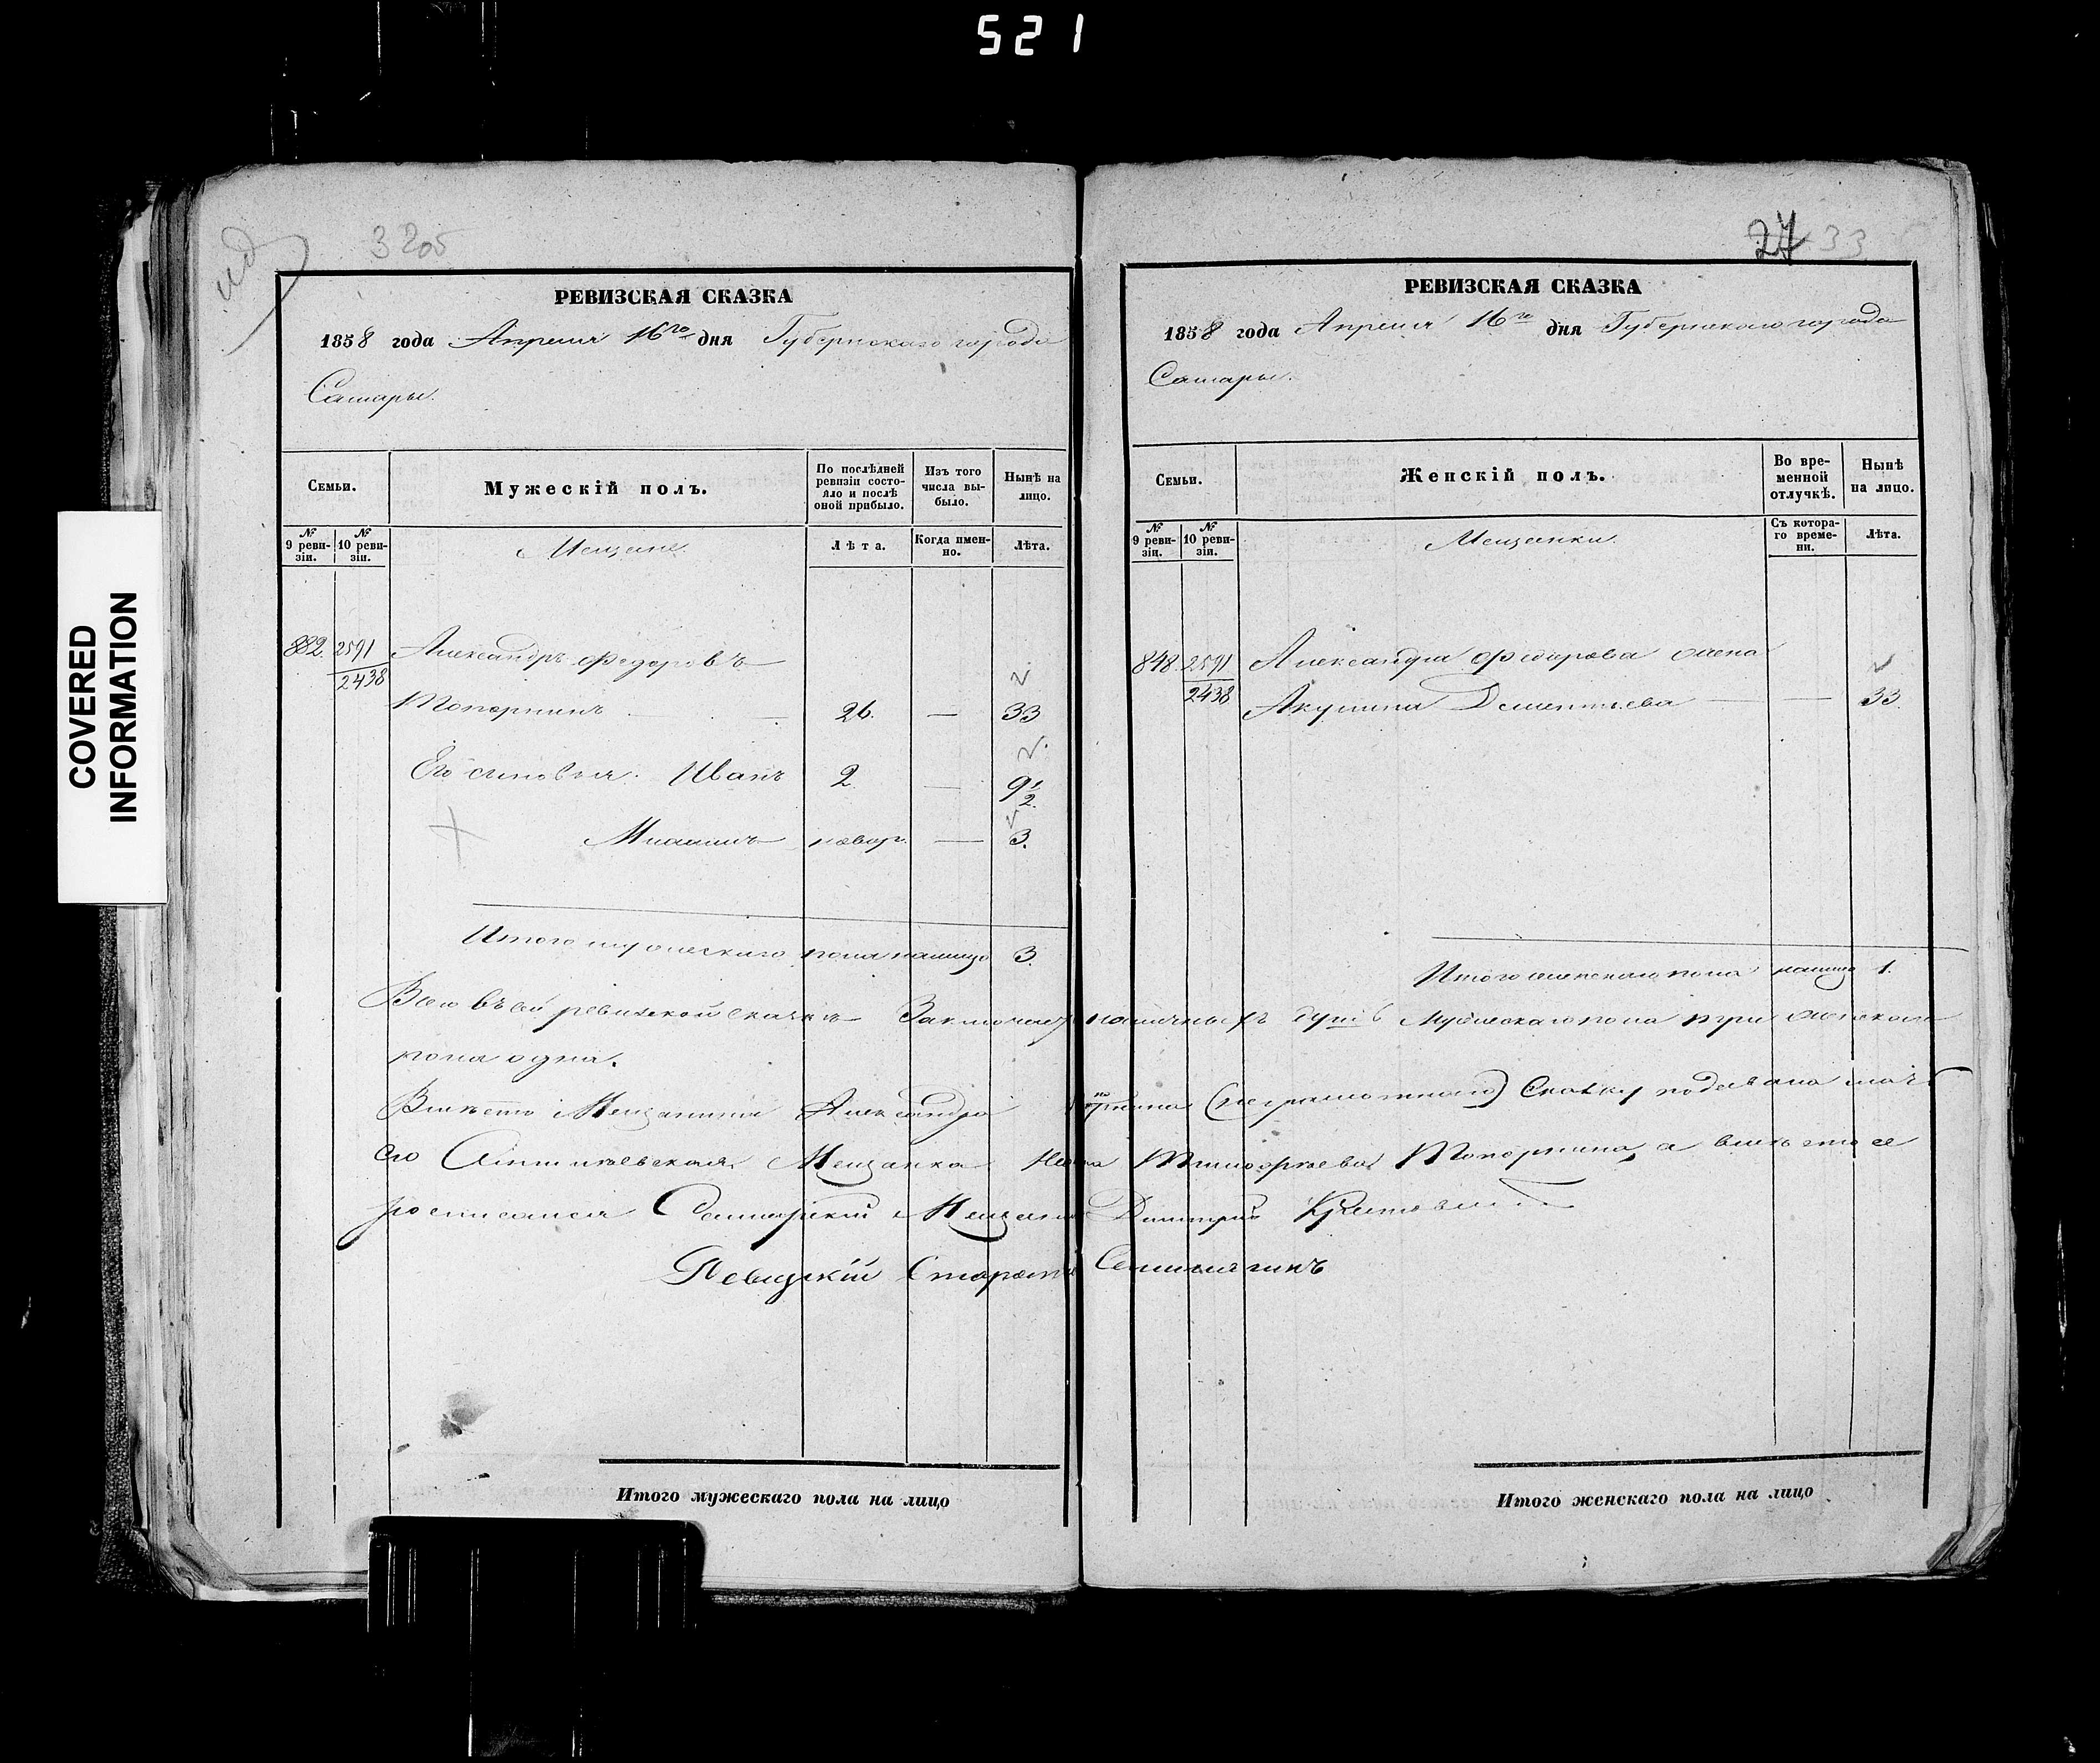 521
3205
РЕВИЗСКАЯ СКАЗКА
1858 года Апреля 16го дня Губернскаго города
Самары.
Семьи.
Мужескій полъ.
По послѣдней ревизіи состояло и послѣ оной прибыло.
Изъ того числа выбыло.
Нынѣ на лицо.
№ 9 ревизіи.
№ 10 ревизіи.
Мещане.
Лѣта.
Когда именно.
Лѣта.
882. 2591 Александръ Федоровъ
2438
Топорнинъ 26. — 33
Его сыновья. Иванъ 2 — 9 1/2.
новор. — 3.
Итого мужескаго пола налицо 3.
27 33
РЕВИЗСКАЯ СКАЗКА
1858 года Апреля 16го дня Губернскаго города
Самары.
Семьи.
Женскій полъ.
Во временной отлучкѣ.
Нынѣ на лицо.
№ 9 ревизіи.
№ 10 ревизіи.
Мещанки.
Съ котораго времени.
Лѣта.
848. 2591 Александра Федорова жена
2438 Акулина Дементьева — — 33.
Итого женскаго пола налицо 1.
Всего въ сей ревизской сказкѣ Заключает наличныхъ душъ Мужескаго пола три женскаго
пола одна.
Вместо Мещанина Александра (неграмотнаго) Сказку подавала мать
его Мещанка Тимофеева Топорнина, а вместо ее
росписался Самарский Мещанин Дмитрий
Староста
Итого мужескаго пола на лицо
Итого женскаго пола на лицо
COVERED
INFORMATION